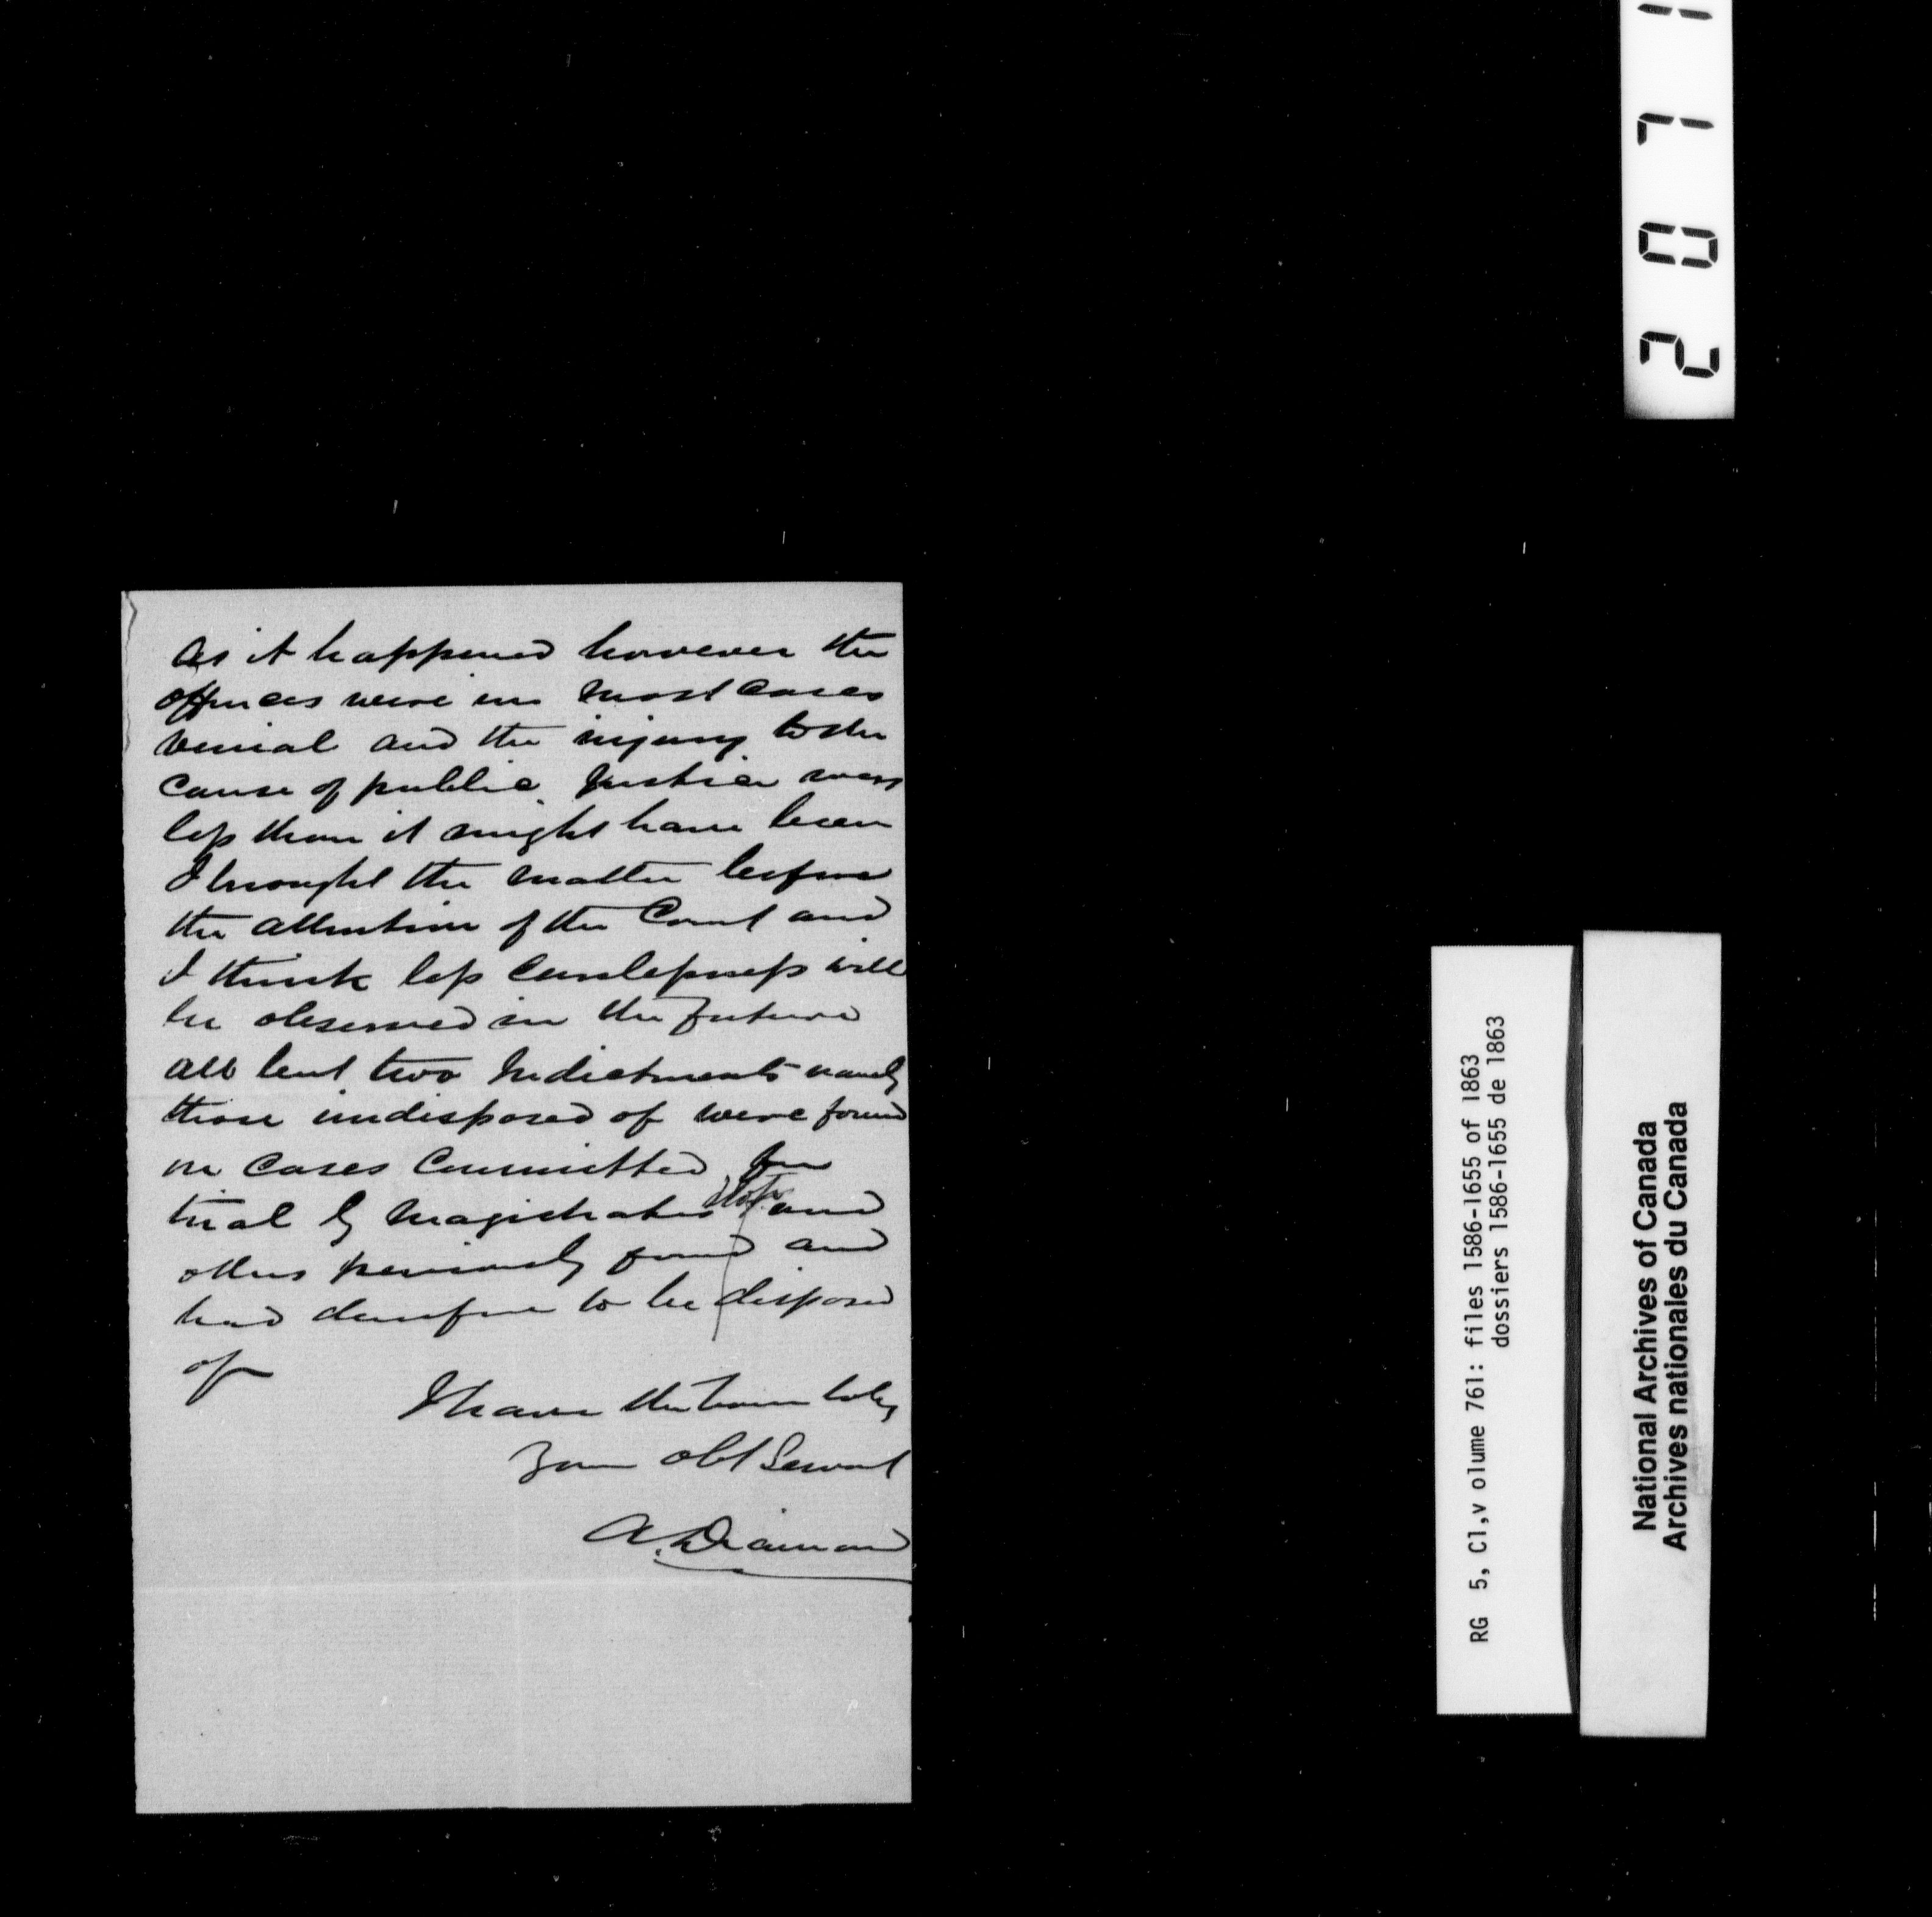 As it happened however the
offences were in most cases
venial and the injury to the
cause of public Justice was
less than it might have been
I brought the matter before
the attention of the Court and
I think less carelessness will
be observed in the future
All but two Indictments namely
those undisposed of were found
on cases committed for
trial by Magistrates and
others previously found and
had therefore to be disposed
of
I have the honor to be
Your obt Servant
A. Diamond
2071
RG 5, C1,v olume 761: files 1586-1655 of 1863
dossiers 1586-1655 de 1863
National Archives of Canada
Archives nationales du Canada